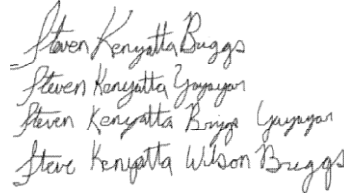 Steven Kenyatta Buggs
Steven Kenyatta Yayayar
Steven Kenyatta Briggs Yayayar
Steve Kenyatta Wilson Briggs